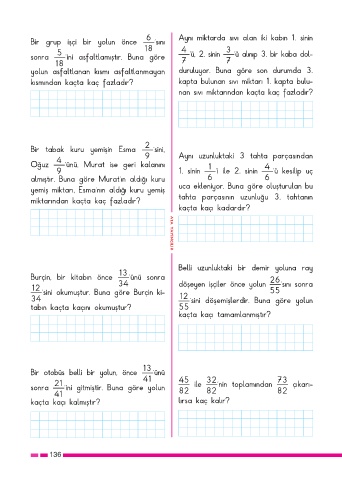 Bir grup işçi bir yolun önce 6/18 sını
sonra 5/18 ini asfaltlamıştır. Buna göre
yolun asfaltlanan kısmı asfaltlanmayan
kısmından kaçta kaç fazladır?
Bir tabak kuru yemişin Esma 2/9 sini,
Oğuz 4/9 ünü, Murat ise geri kalanını
almıştır. Buna göre Murat'ın aldığı kuru
yemiş miktarı, Esma'nın aldığı kuru yemiş
miktarından kaçta kaç fazladır?
Burçin, bir kitabın önce 13/34 ünü sonra
12/34 sini okumuştur. Buna göre Burçin ki-
tabın kaçta kaçını okumuştur?
Bir otobüs belli bir yolun, önce 13/41 ünü
sonra 21/41 ini gitmiştir. Buna göre yolun
kaçta kaçı kalmıştır?
Aynı miktarda sıvı alan iki kabın 1. sinin
4/7 ü, 2. sinin 3/7 ü alınıp 3. bir kaba dol-
duruluyor. Buna göre son durumda 3.
kapta bulunan sıvı miktarı 1. kapta bulu-
nan sıvı miktarından kaçta kaç fazladır?
Aynı uzunluktaki 3 tahta parçasından
1. sinin 1/6 i ile 2. sinin 4/6 ü kesilip uç
uca ekleniyor. Buna göre oluşturulan bu
tahta parçasının uzunluğu 3. tahtanın
kaçta kaçı kadardır?
Belli uzunluktaki bir demir yoluna ray
döşeyen işçiler önce yolun 26/55 sını sonra
12/55 sini döşemişlerdir. Buna göre yolun
kaçta kaçı tamamlanmıştır?
45/82 ile 32/82 nin toplamından 73/82 çıkarı-
lırsa kaç kalır?
136